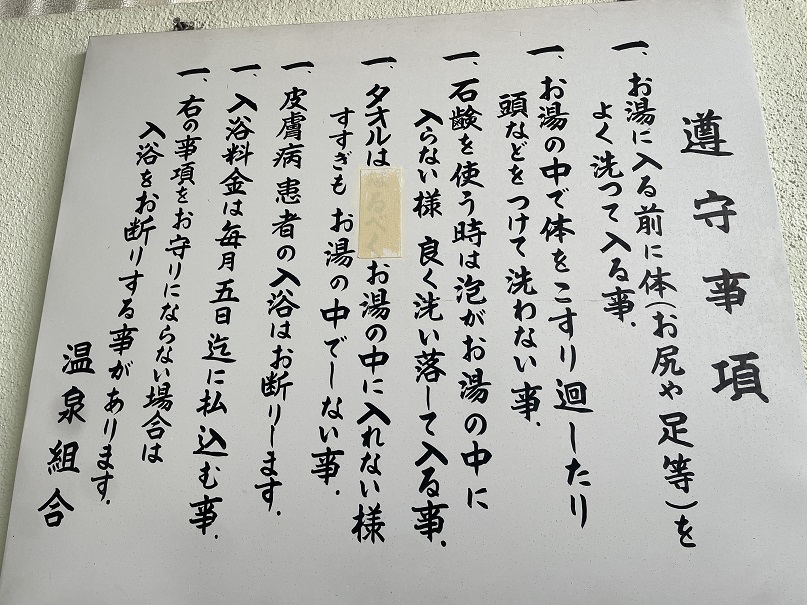 遵守事項
一、お湯に入る前に体(お尻や足等)を
よく洗つて入る事.
一、お湯の中で体をこすり廻したり
頭などをつけて洗わない事.
一、石鹸を使う時は泡がお湯の中に
入らない様 良く洗い落して入る事.
一、タオルは お湯の中に入れない様
すすぎも お湯の中でしない事.
一、皮膚病患者の入浴はお断りします.
一、入浴料金は毎月五日迄に払込む事.
一、右の事項をお守りにならない場合は
入浴をお断りする事があります.
温泉組合